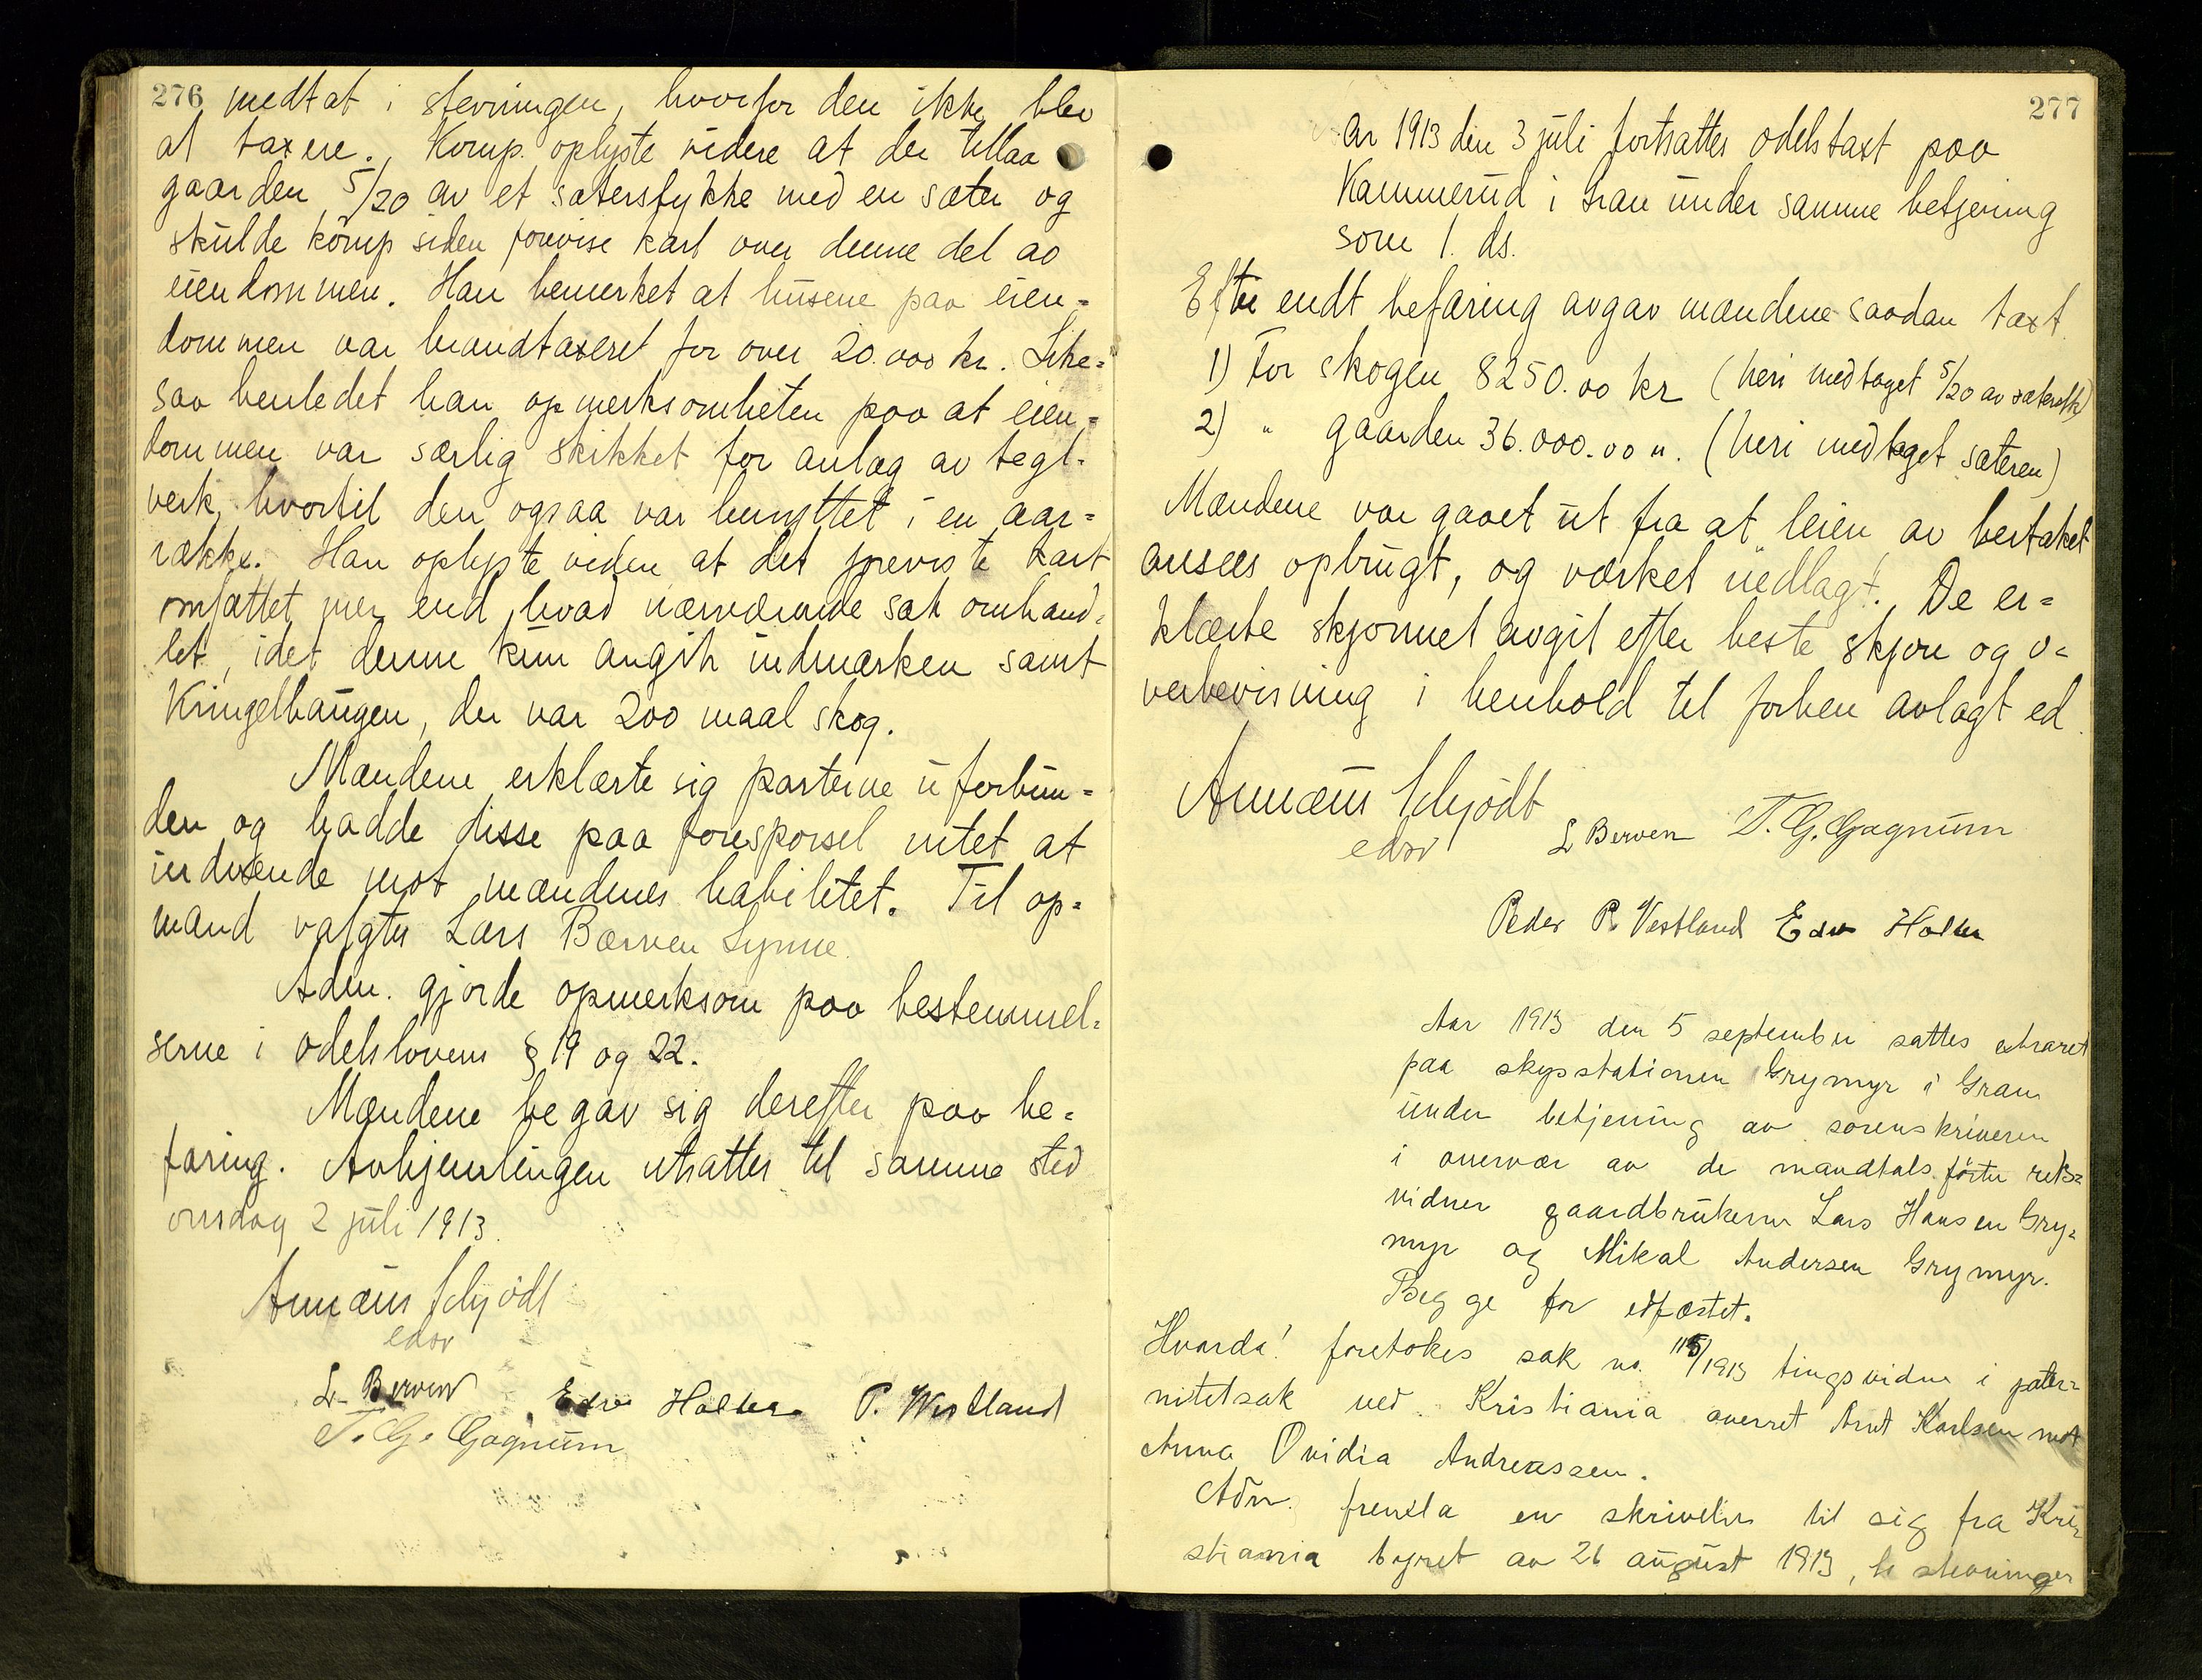 276 medtat i stevningen, hvorfor den ikke blev
at taxere. Komp. oplyste videre at der tillaa
gaarden 5/20 av et sæterstykke med en sæter og
skulde komp siden forevise kart over denne del av
eiendommen. Han bemerket at husene paa eien-
dommen var brandtaxeret for over 20.000 kr. Like-
saa henledet han opmerksomheten paa at eien-
dommen var særlig skikket for anlæg av tegl-
verk, hvortil den ogsaa var benyttet i en aar-
række. Han oplyste videre at det foreviste kart
omfattet mer end hvad nærværende sak omhand-
let, idet denne kun angik indmarken samt
Kringelhaugen, der var 200 maal skog.
Mændene erklærte sig parterne uforbun-
den og hadde disse paa forespørsel intet at
indvende mot mændenes habilitet. Til op-
mand valgtes Lars Bærven Lynne.
Adm. gjorde opmerksom paa bestemmel-
serne i odelslovens § 19 og 22.
Mændene begav sig derefter paa be-
faring. Avhjemlingen utsattes til samme sted
onsdag 2 juli 1913.
Annæus Schjødt
edsv
L. Berven Edv Holter P. Westland
T. G. Gagnum
277
Aar 1913 den 3 juli fortsattes odelstaxt paa
Kammerud i Gran under samme betjening
som 1. ds.
Efter endt befaring avgav mændene saadan taxt.
1) For skogen 8250.00 kr (heri medtaget 5/20 av sæterstk)
2) " gaarden 36.000.00 ". (heri medtaget sæteren)
Mændene var gaaet ut fra at leien av bertaket
ansees opbrugt, og værket nedlagt. De er-
klærte skjønnet avgit efter beste skjøn og o-
verbevisning i henhold til forhen avlagt ed.
Annæus Schjødt
edsv L Berven T. G. Gagnum
Peder P. Vestland Edv Holter
Aar 1913 den 5 september sattes extraret
paa skysstationen Grymyr i Gran
under betjening av sorenskriveren
i overvær av de mandtalsførte rets-
vidner gaardbrukerne Lars Hansen Gry-
myr og Mikal Andersen Grymyr.
Begge før edfæstet.
Hvorda! foretokes sak no. 115/1913 tingsvidne i pater-
nitetsak ved Kristiania overret Arnt Karlsen mot
Anna Ovidia Andreassen.
Adm. fremla en skrivelse til sig fra Kri-
stiania byret av 26 august 1913, le stevninger